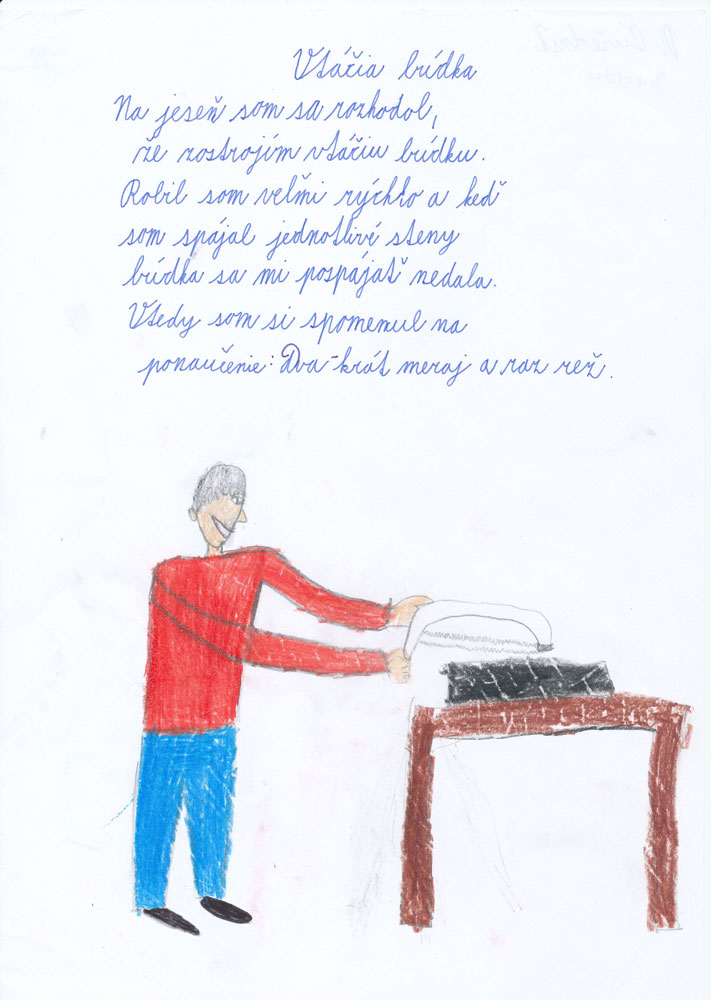 Vtáčia búdka
Na jeseň som sa rozhodol,
že zostrojím vtáčiu búdku.
Robil som veľmi rýchlo a keď
som spájal jednotlivé steny
búdka sa mi pospájať nedala.
Vtedy som si spomenul na
ponaučenie: Dva-krát meraj a raz rež.